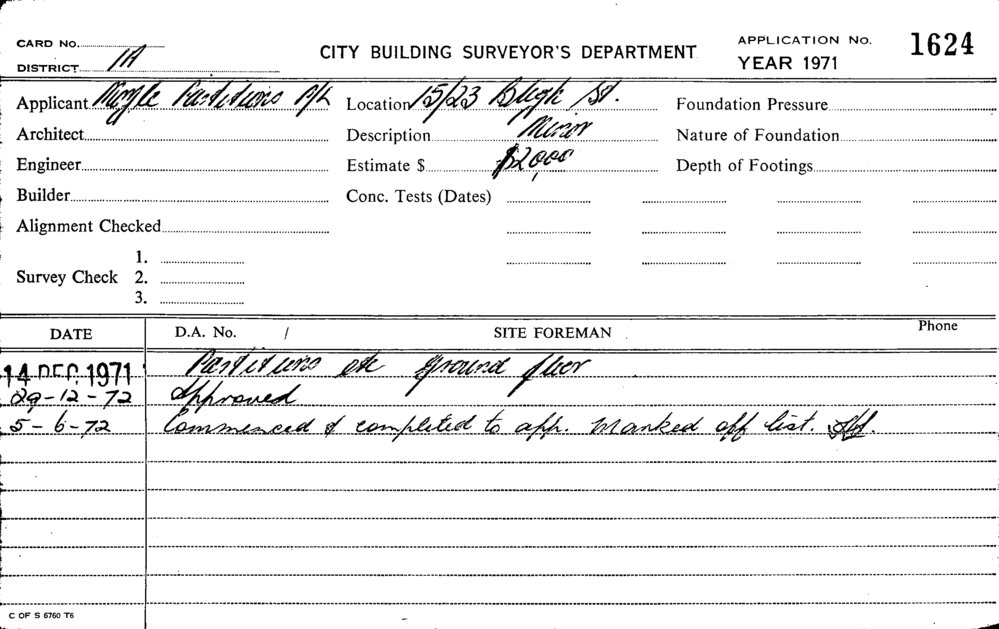 CARD No.
DISTRICT 1A
CITY BUILDING SURVEYOR'S DEPARTMENT
APPLICATION No. 1624
YEAR 1971
Applicant Partitions P/L
Location 15/23 Bligh St.
Foundation Pressure
Architect
Description Minor
Nature of Foundation
Engineer
Estimate $ $2,000
Depth of Footings
Builder
Conc. Tests (Dates)
Alignment Checked
Survey Check
1.
2.
3.
DATE
D.A. No. /
SITE FOREMAN
Phone
14 DEC 1971 Partitions etc ground floor
29-12-72 Approved
5-6-72 Commenced & completed to app. Marked off list.
C OF S 6760 T6